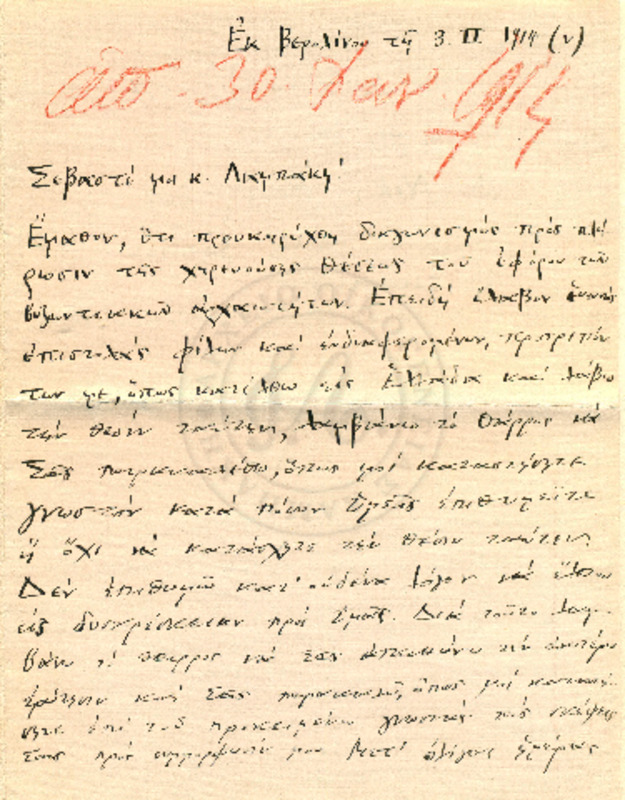 Ἐκ Βερολίνου τῇ 3. II 1914 (ν)
ἀπό 30 Ἰαν. 1914
Σεβαστέ μοι κ. Λαμπάκη!
Ἔμαθον, ὅτι προυκηρύχθη διαγωνισμός πρός πλή-
ρωσιν τῆς χηρευούσης θέσεως τοῦ ἐφόρου τῶν
βυζαντιακῶν ἀρχαιοτήτων. Ἐπειδή ἔλαβον
ἐπιστολάς φίλων καί ἐνδιαφερομένων, προτρεπόν
των με, ὅπως κατέλθω εἰς Ἑλλάδα καί λάβω
τήν θέσιν ταύτην, λαμβάνω τό θάρρος νά
Σᾶς παρακαλέσω, ὅπως μοί καταστήσητε
γνωστόν κατά πόσον Ὑμεῖς ἐπιθυμεῖτε
ἤ ὄχι νά κατάσχητε τήν θέσιν ταύτην.
Δέν ἐπιθυμῶ κατ' οὐδένα λόγον νά ἔλθω
εἰς δυσαρέσκειαν πρός Ὑμᾶς. Διά τοῦτο λαμ-
βάνω τό θάρρος νά Σᾶς ἀπευθύνω τήν ἀνωτέρω
ἐρώτησιν καί Σᾶς παρακαλῶ, ὅπως μοί καταστή-
σητε ἐπί τοῦ προκειμένου γνωστάς τάς σκέψεις
Σας πρός συμμόρφωσίν μου. Μετ' ὀλίγας ἡμέρας